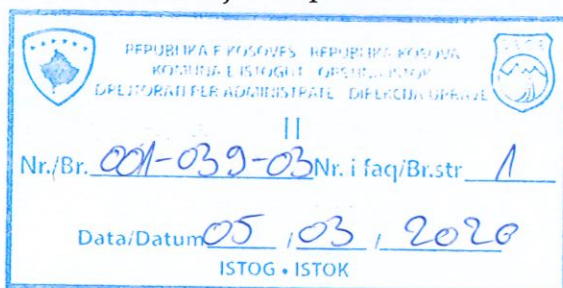 REPUBLIKA E KOSOVËS - REPUBLIKA KOSOVA
KOMUNA E ISTOGUT - OPŠTINA ISTOK
DREJTORATI PËR ADMINISTRATË - DIREKCIJA UPRAVE
II
Nr./Br. 001-039-03 Nr. i faq/Br.str 1
Data/Datum 05 / 03 / 2020
ISTOG • ISTOK